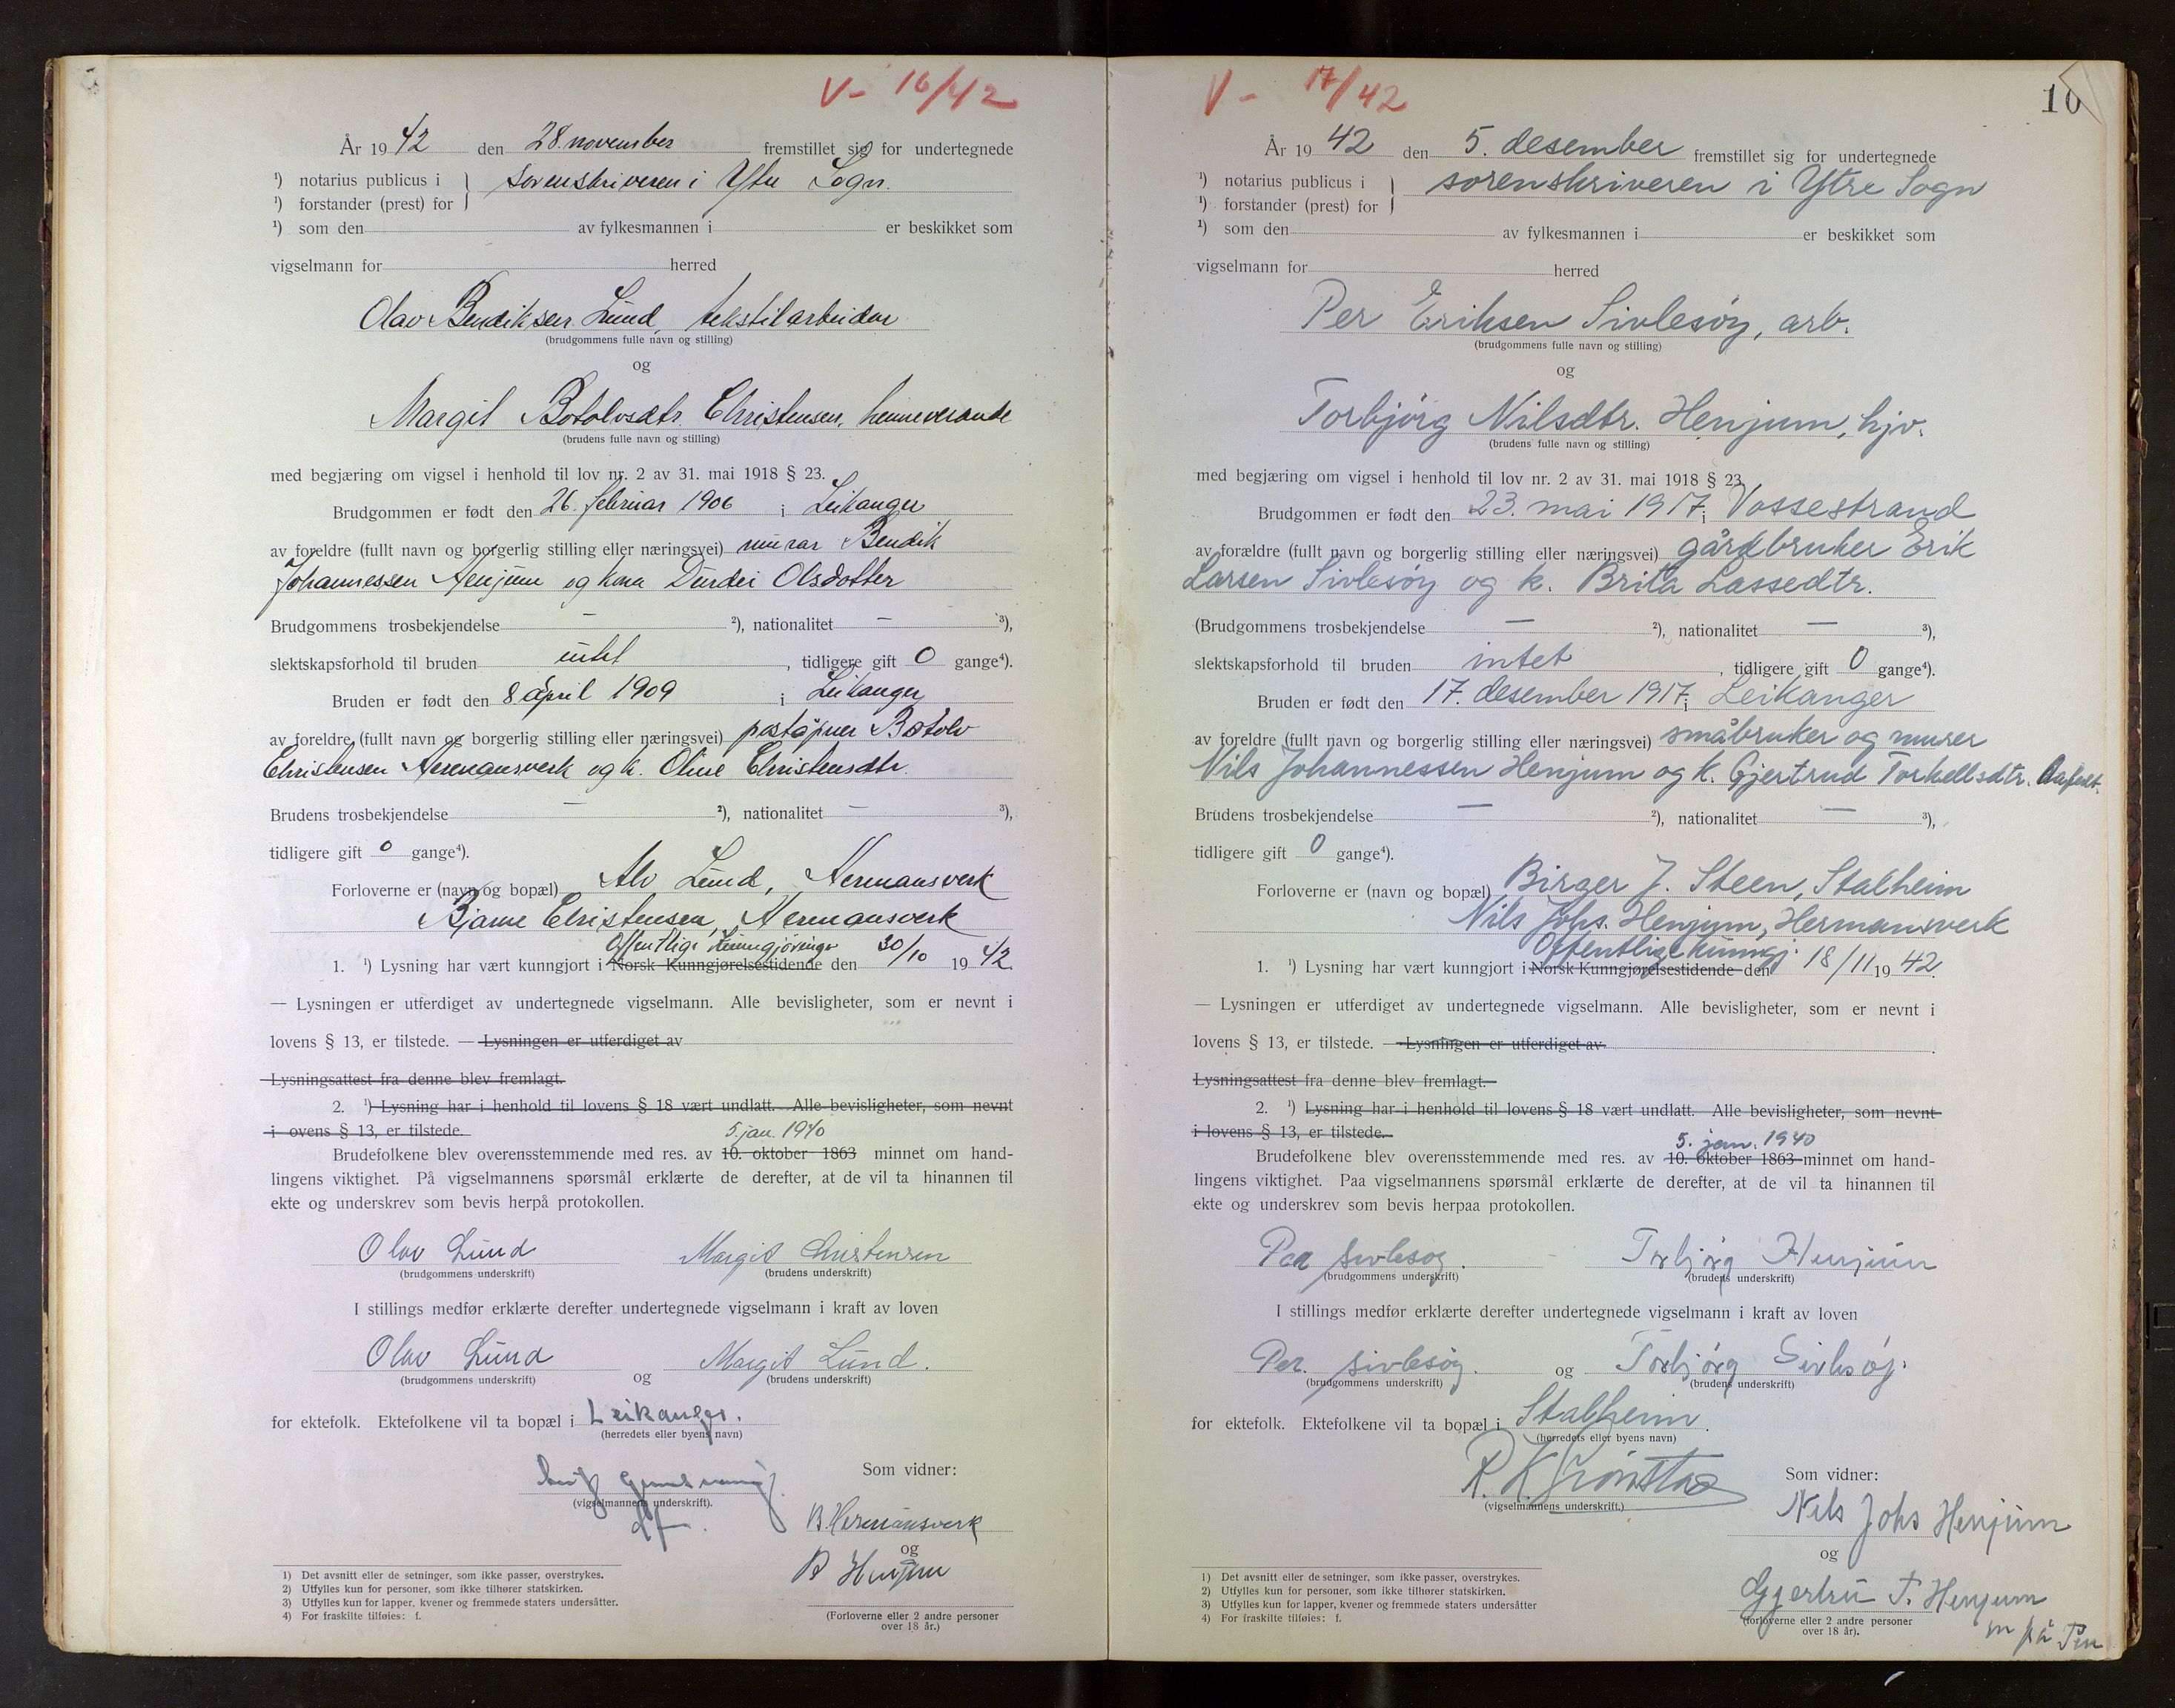 V- 16/42
År 1942 den 28. november fremstillet sig for undertegnede
¹) notarius publicus i } sorenskriveren i Ytre Sogn.
¹) forstander (prest) for
¹) som den av fylkesmannen i er beskikket som
vigselmann for herred
Olav Bendiksen Lund, tekstilarbeidar
(brudgommens fulle navn og stilling)
og
Margit Botolvsdtr. Christensen, heimeverande
(brudens fulle navn og stilling)
med begjæring om vigsel i henhold til lov nr. 2 av 31. mai 1918 § 23.
Brudgommen er født den 26. februar 1906 i Leikanger
av foreldre (fullt navn og borgerlig stilling eller næringsvei) murar Bendik
Johannessen Henjum og kona Durdei Olsdotter
Brudgommens trosbekjendelse — ²), nationalitet — ³),
slektskapsforhold til bruden intet, tidligere gift 0 gange⁴).
Bruden er født den 8 april 1909 i Leikanger
av foreldre (fullt navn og borgerlig stilling eller næringsvei) poståpner Botolv
Christensen Hermansverk og k. Oline Christensdtr.
Brudens trosbekjendelse — ²), nationalitet — ³),
tidligere gift 0 gange⁴).
Forloverne er (navn og bopæl) Alv Lund, Hermansverk
Bjarne Christensen, Hermansverk
Offentlige kunngjøringer
1. ¹) Lysning har vært kunngjort i Norsk Kunngjørelsestidende den 30/10 1942.
— Lysningen er utferdiget av undertegnede vigselmann. Alle bevisligheter, som er nevnt i
lovens § 13, er tilstede. — Lysningen er utferdiget av
Lysningsattest fra denne blev fremlagt.
2. ¹) Lysning har i henhold til lovens § 18 vært undlatt. Alle bevisligheter, som nevnt
i ovens § 13, er tilstede.
5. jan. 1940
Brudefolkene blev overensstemmende med res. av 10. oktober 1863 minnet om hand-
lingens viktighet. På vigselmannens spørsmål erklærte de derefter, at de vil ta hinannen til
ekte og underskrev som bevis herpå protokollen.
Olav Lund Margit Christensen
(brudgommens underskrift) (brudens underskrift)
I stillings medfør erklærte derefter undertegnede vigselmann i kraft av loven
Olav Lund og Margit Lund.
(brudgommens underskrift) (brudens underskrift)
for ektefolk. Ektefolkene vil ta bopæl i Leikanger.
(herredets eller byens navn)
Som vidner:
(vigselmannens underskrift).
B. Hermansverk
og
B Henjum
(Forloverne eller 2 andre personer
over 18 år.)
1) Det avsnitt eller de setninger, som ikke passer, overstrykes.
2) Utfylles kun for personer, som ikke tilhører statskirken.
3) Utfylles kun for lapper, kvener og fremmede staters undersåtter.
4) For fraskilte tilføies: f.
V- 17/42
10
År 1942 den 5. desember fremstillet sig for undertegnede
¹) notarius publicus i } sorenskriveren i Ytre Sogn
¹) forstander (prest) for
¹) som den av fylkesmannen i er beskikket som
vigselmann for herred
Per Eriksen Sivlesøy, arb.
(brudgommens fulle navn og stilling)
og
Torbjørg Nilsdtr. Henjum, hjv.
(brudens fulle navn og stilling)
med begjæring om vigsel i henhold til lov nr. 2 av 31. mai 1918 § 23.
Brudgommen er født den 23. mai 1917 i Vossestrand
av forældre (fullt navn og borgerlig stilling eller næringsvei) gårdbruker Erik
Larsen Sivlesøy og k. Brita Lassedtr.
(Brudgommens trosbekjendelse — ²), nationalitet — ³),
slektskapsforhold til bruden intet, tidligere gift 0 gange⁴).
Bruden er født den 17. desember 1917 i Leikanger
av foreldre (fullt navn og borgerlig stilling eller næringsvei) småbruker og murer
Nils Johannessen Henjum og k. Gjertrud Torkellsdtr.
Brudens trosbekjendelse — ²), nationalitet — ³),
tidligere gift 0 gange⁴).
Forloverne er (navn og bopæl) Birger J. Steen, Stalheim
Nils Johs. Henjum, Hermansverk
Offentlige kunngj.
1. ¹) Lysning har vært kunngjort i Norsk Kunngjørelsestidende den 18/11 1942.
— Lysningen er utferdiget av undertegnede vigselmann. Alle bevisligheter, som er nevnt i
lovens § 13, er tilstede. — Lysningen er utferdiget av
Lysningsattest fra denne blev fremlagt.
2. ¹) Lysning har i henhold til lovens § 18 vært undlatt. Alle bevisligheter, som nevnt
i lovens § 13, er tilstede.
5. jan. 1940
Brudefolkene blev overensstemmende med res. av 10. oktober 1863 minnet om hand-
lingens viktighet. Paa vigselmannens spørsmål erklærte de derefter, at de vil ta hinannen til
ekte og underskrev som bevis herpaa protokollen.
Per Sivlesøy. Torbjørg Henjum
(brudgommens underskrift) (brudens underskrift)
I stillings medfør erklærte derefter undertegnede vigselmann i kraft av loven
Per. Sivlesøy. og Torbjørg Sivlesøy.
(brudgommens underskrift) (brudens underskrift)
for ektefolk. Ektefolkene vil ta bopæl i Stalheim.
(herredets eller byens navn)
R. K. Grønstad
Som vidner:
(vigselmannens underskrift.)
Nils Johs Henjum
og
Gjertru T. Henjum
m. på
(forloverne eller 2 andre personer
over 18 år).
1) Det avsnitt eller de setninger, som ikke passer, overstrykes.
2) Utfylles kun for personer, som ikke tilhører statskirken.
3) Utfylles kun for lapper, kvener og fremmede staters undersåtter
4) For fraskilte tilføies: f.